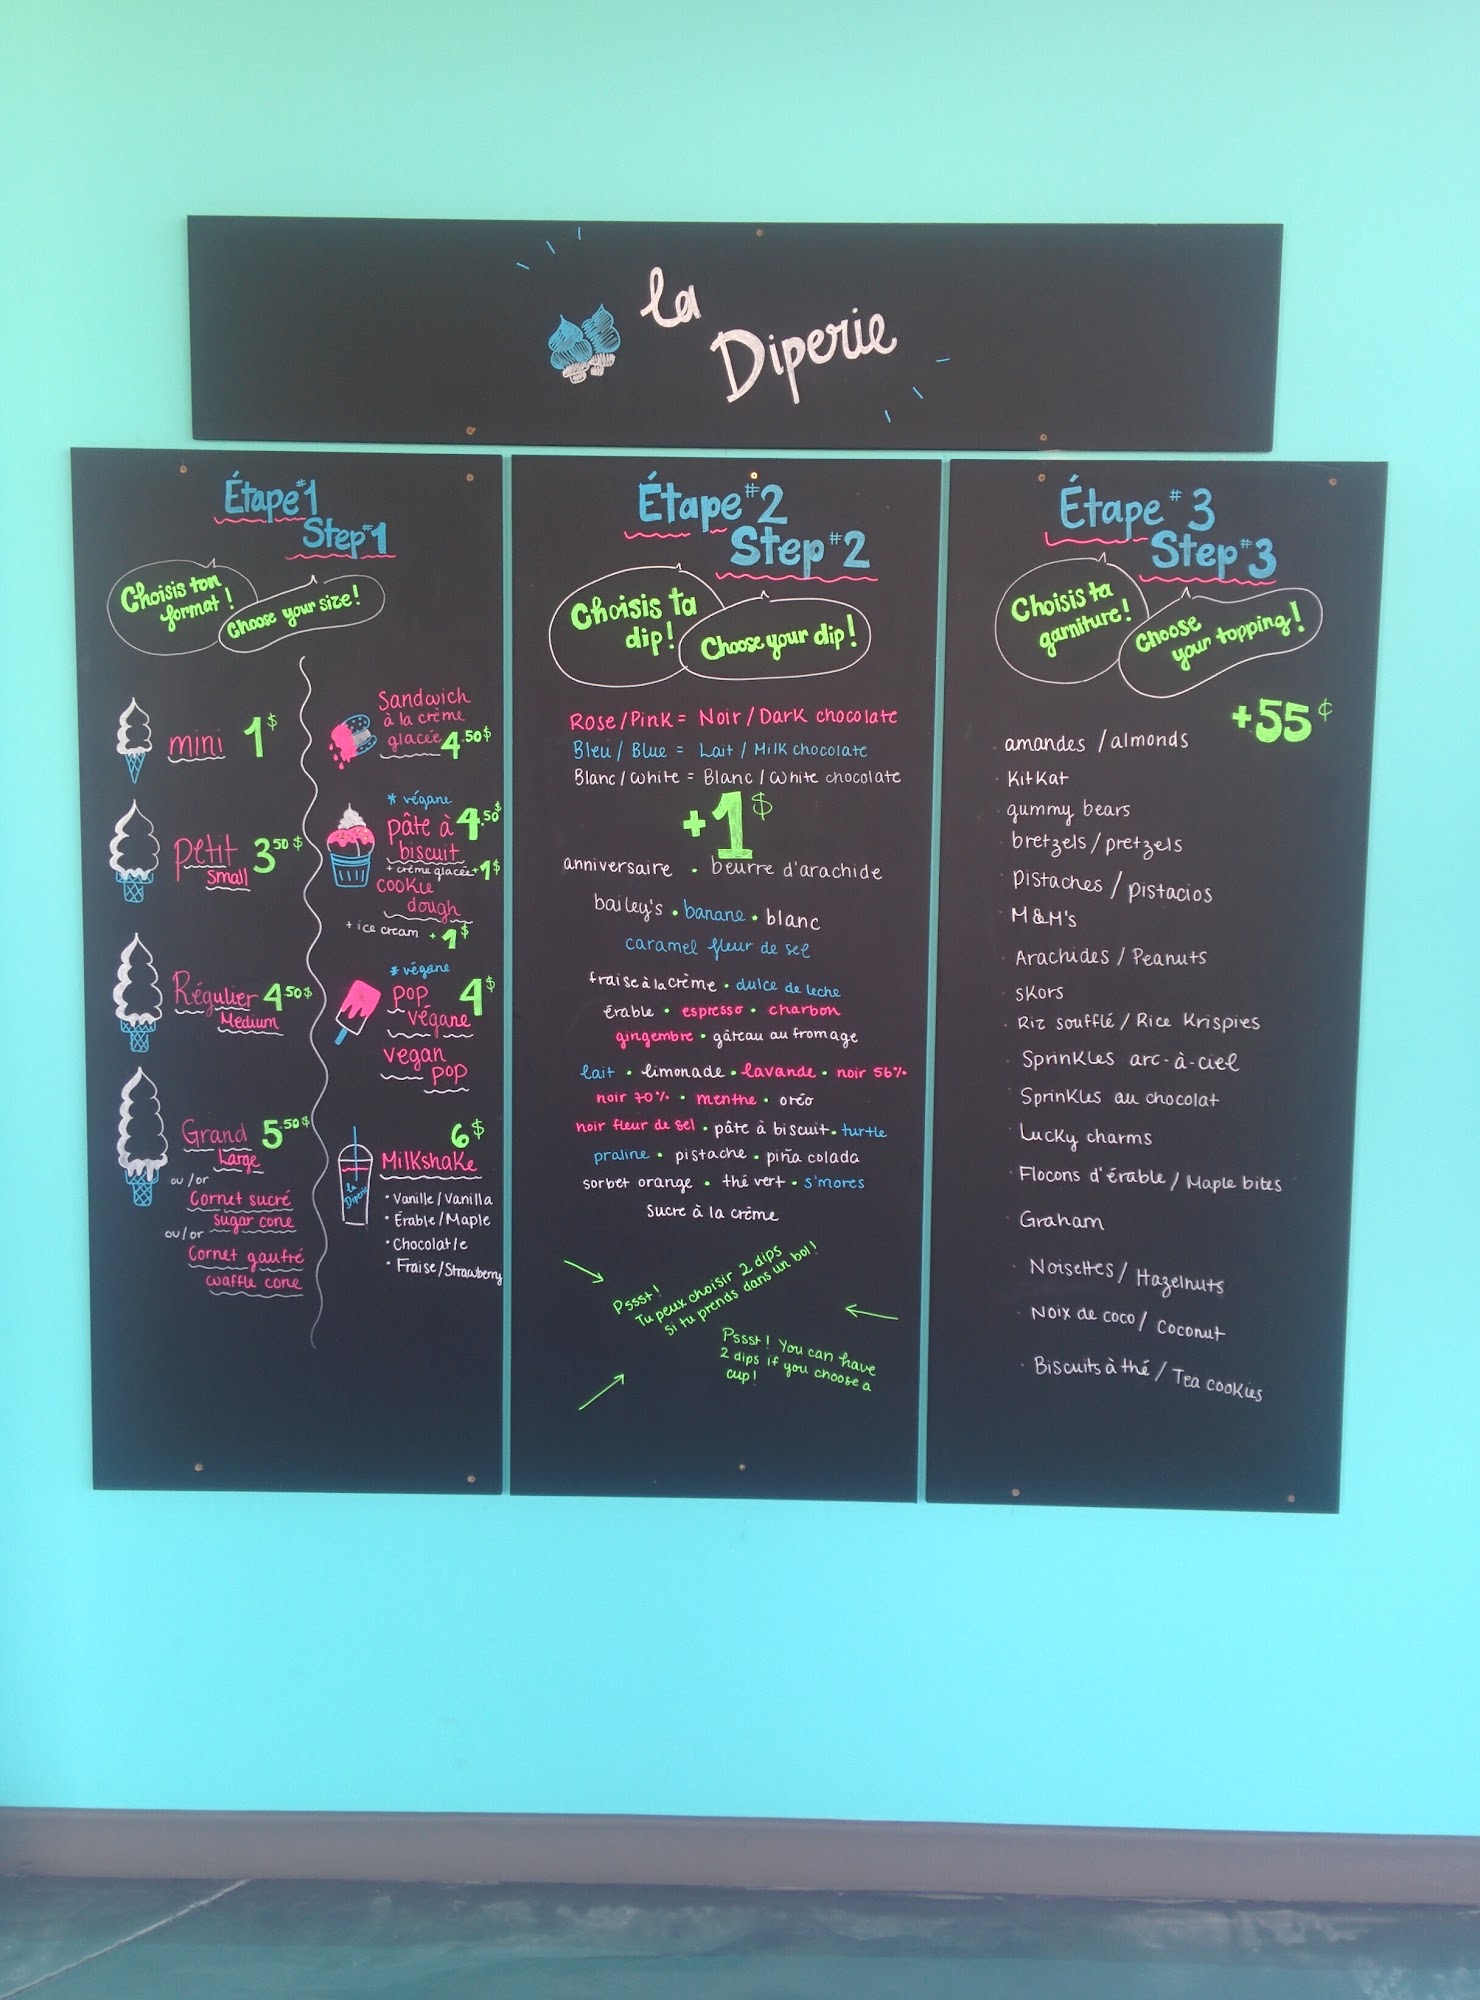 la
Diperie
Étape #1
Step #1
Choisis ton
format!
Choose your size!
mini 1$
petit 3.50$
Small
Régulier 4.50$
Medium
Grand 5.50$
Large
ou/or
Cornet sucré
sugar cone
ou/or
Cornet gaufré
waffle cone
Sandwich
à la crème
glacée 4.50$
* végane
pâte à 4.50$
biscuit
+ crème glacée +1$
cookie
dough
+ ice cream + 1$
* végane
pop 4$
végane
vegan
pop
6$
Milkshake
la
Diperie
• Vanille/Vanilla
• Érable/Maple
• Chocolat/e
• Fraise/Strawberry
Étape #2
Step #2
Choisis ta
dip!
Choose your dip!
Rose/Pink = Noir/Dark chocolate
Bleu/Blue = Lait/Milk chocolate
Blanc/White = Blanc/White chocolate
+1$
anniversaire • beurre d'arachide
bailey's • banane • blanc
caramel fleur de sel
fraise à la crème • dulce de leche
érable • espresso • charbon
gingembre • gâteau au fromage
lait • limonade • lavande • noir 56%
noir 70% • menthe • oréo
noir fleur de sel • pâte à biscuit • turtle
praline • pistache • piña colada
sorbet orange • thé vert • s'mores
sucre à la crème
Pssst!
Tu peux choisir 2 dips
si tu prends dans un bol!
Pssst! You can have
2 dips if you choose a
cup!
Étape #3
Step #3
Choisis ta
garniture!
Choose
your topping!
+55¢
• amandes/almonds
• KitKat
• gummy bears
• bretzels/pretzels
• Pistaches/pistacios
• M&M's
• Arachides/Peanuts
• Skors
• Riz soufflé/Rice Krispies
• Sprinkles arc-à-ciel
• Sprinkles au chocolat
• Lucky charms
• Flocons d'érable/Maple bites
• Graham
• Noisettes/Hazelnuts
• Noix de coco/Coconut
• Biscuits à thé/Tea cookies